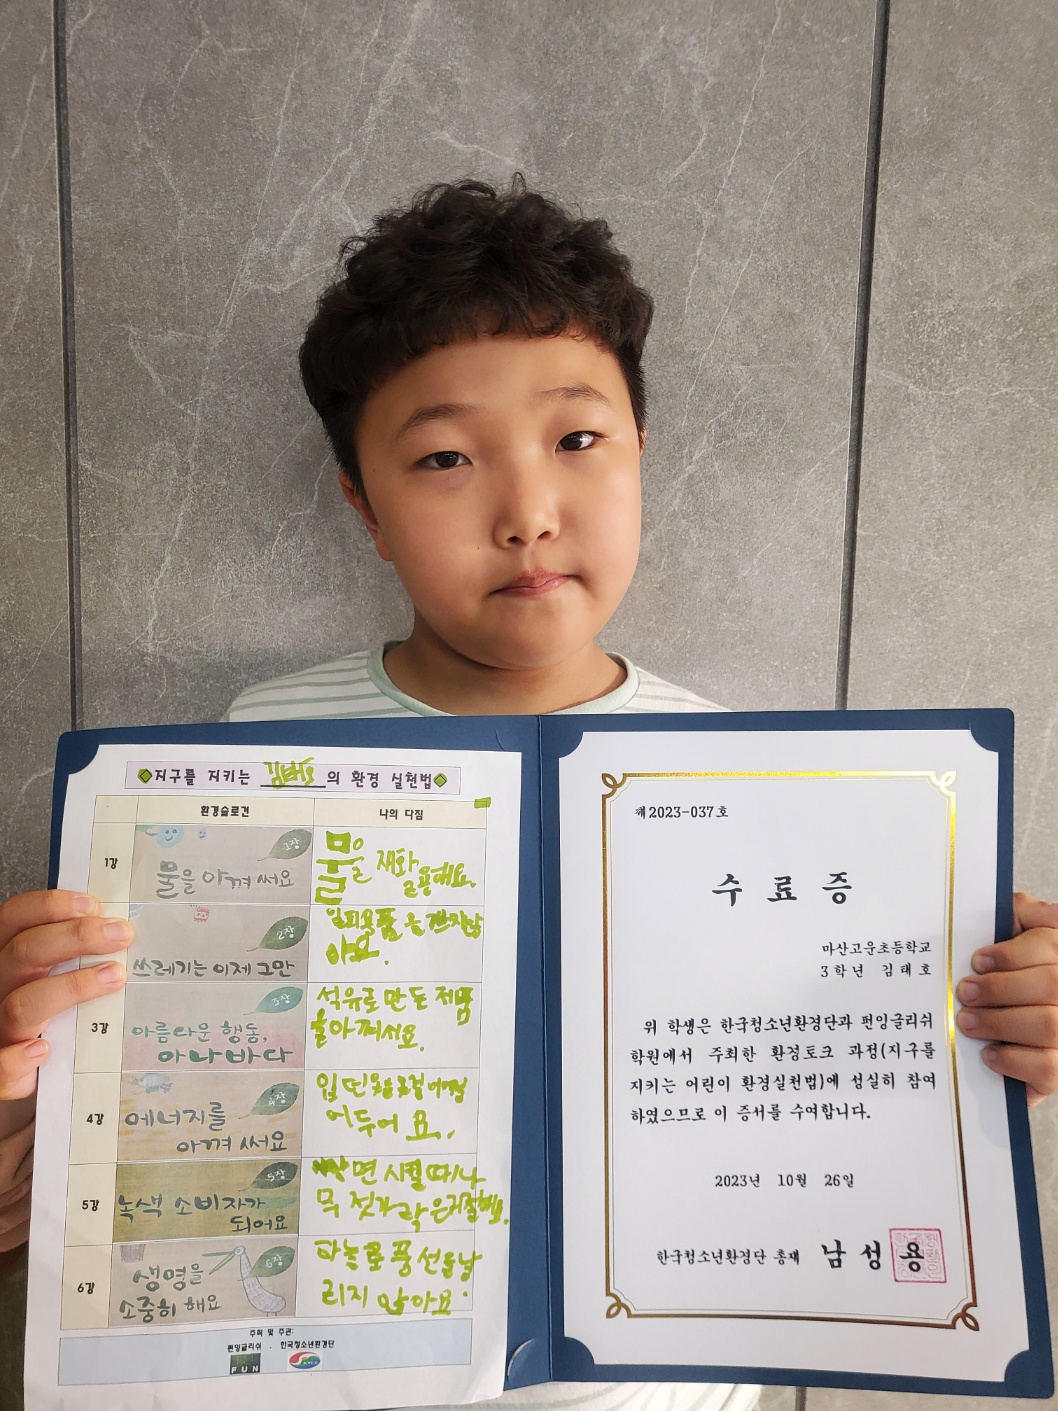 지구를 지키는 의 환경 실천법
환경슬로건
나의 다짐
1강
1장
물을 아껴 써요
물을 재활
용해요.
2장
쓰레기는 이제 그만
일회용품은 쓰지않
아요.
3강
3장
아름다운 행동,
아나바다
석유로 만든 제품
아껴써요.
4강
4장
에너지를
아껴 써요
어두어요.
5강
5장
녹색 소비자가
되어요
면 시킬 때 나
무 젓가락은 거절해요.
6강
6장
생명을
소중히 해요
하늘로 풍선을날
리지 않아요.
주최 및 주관:
펀잉글리쉬 . 한국청소년환경단
FUN
제2023-037호
수료증
마산고운초등학교
3학년 김태호
위 학생은 한국청소년환경단과 펀잉글리쉬
학원에서 주최한 환경토크 과정(지구를
지키는 어린이 환경실천법)에 성실히 참여
하였으므로 이 증서를 수여합니다.
2023년 10월 26일
한국청소년환경단 총재 남성용